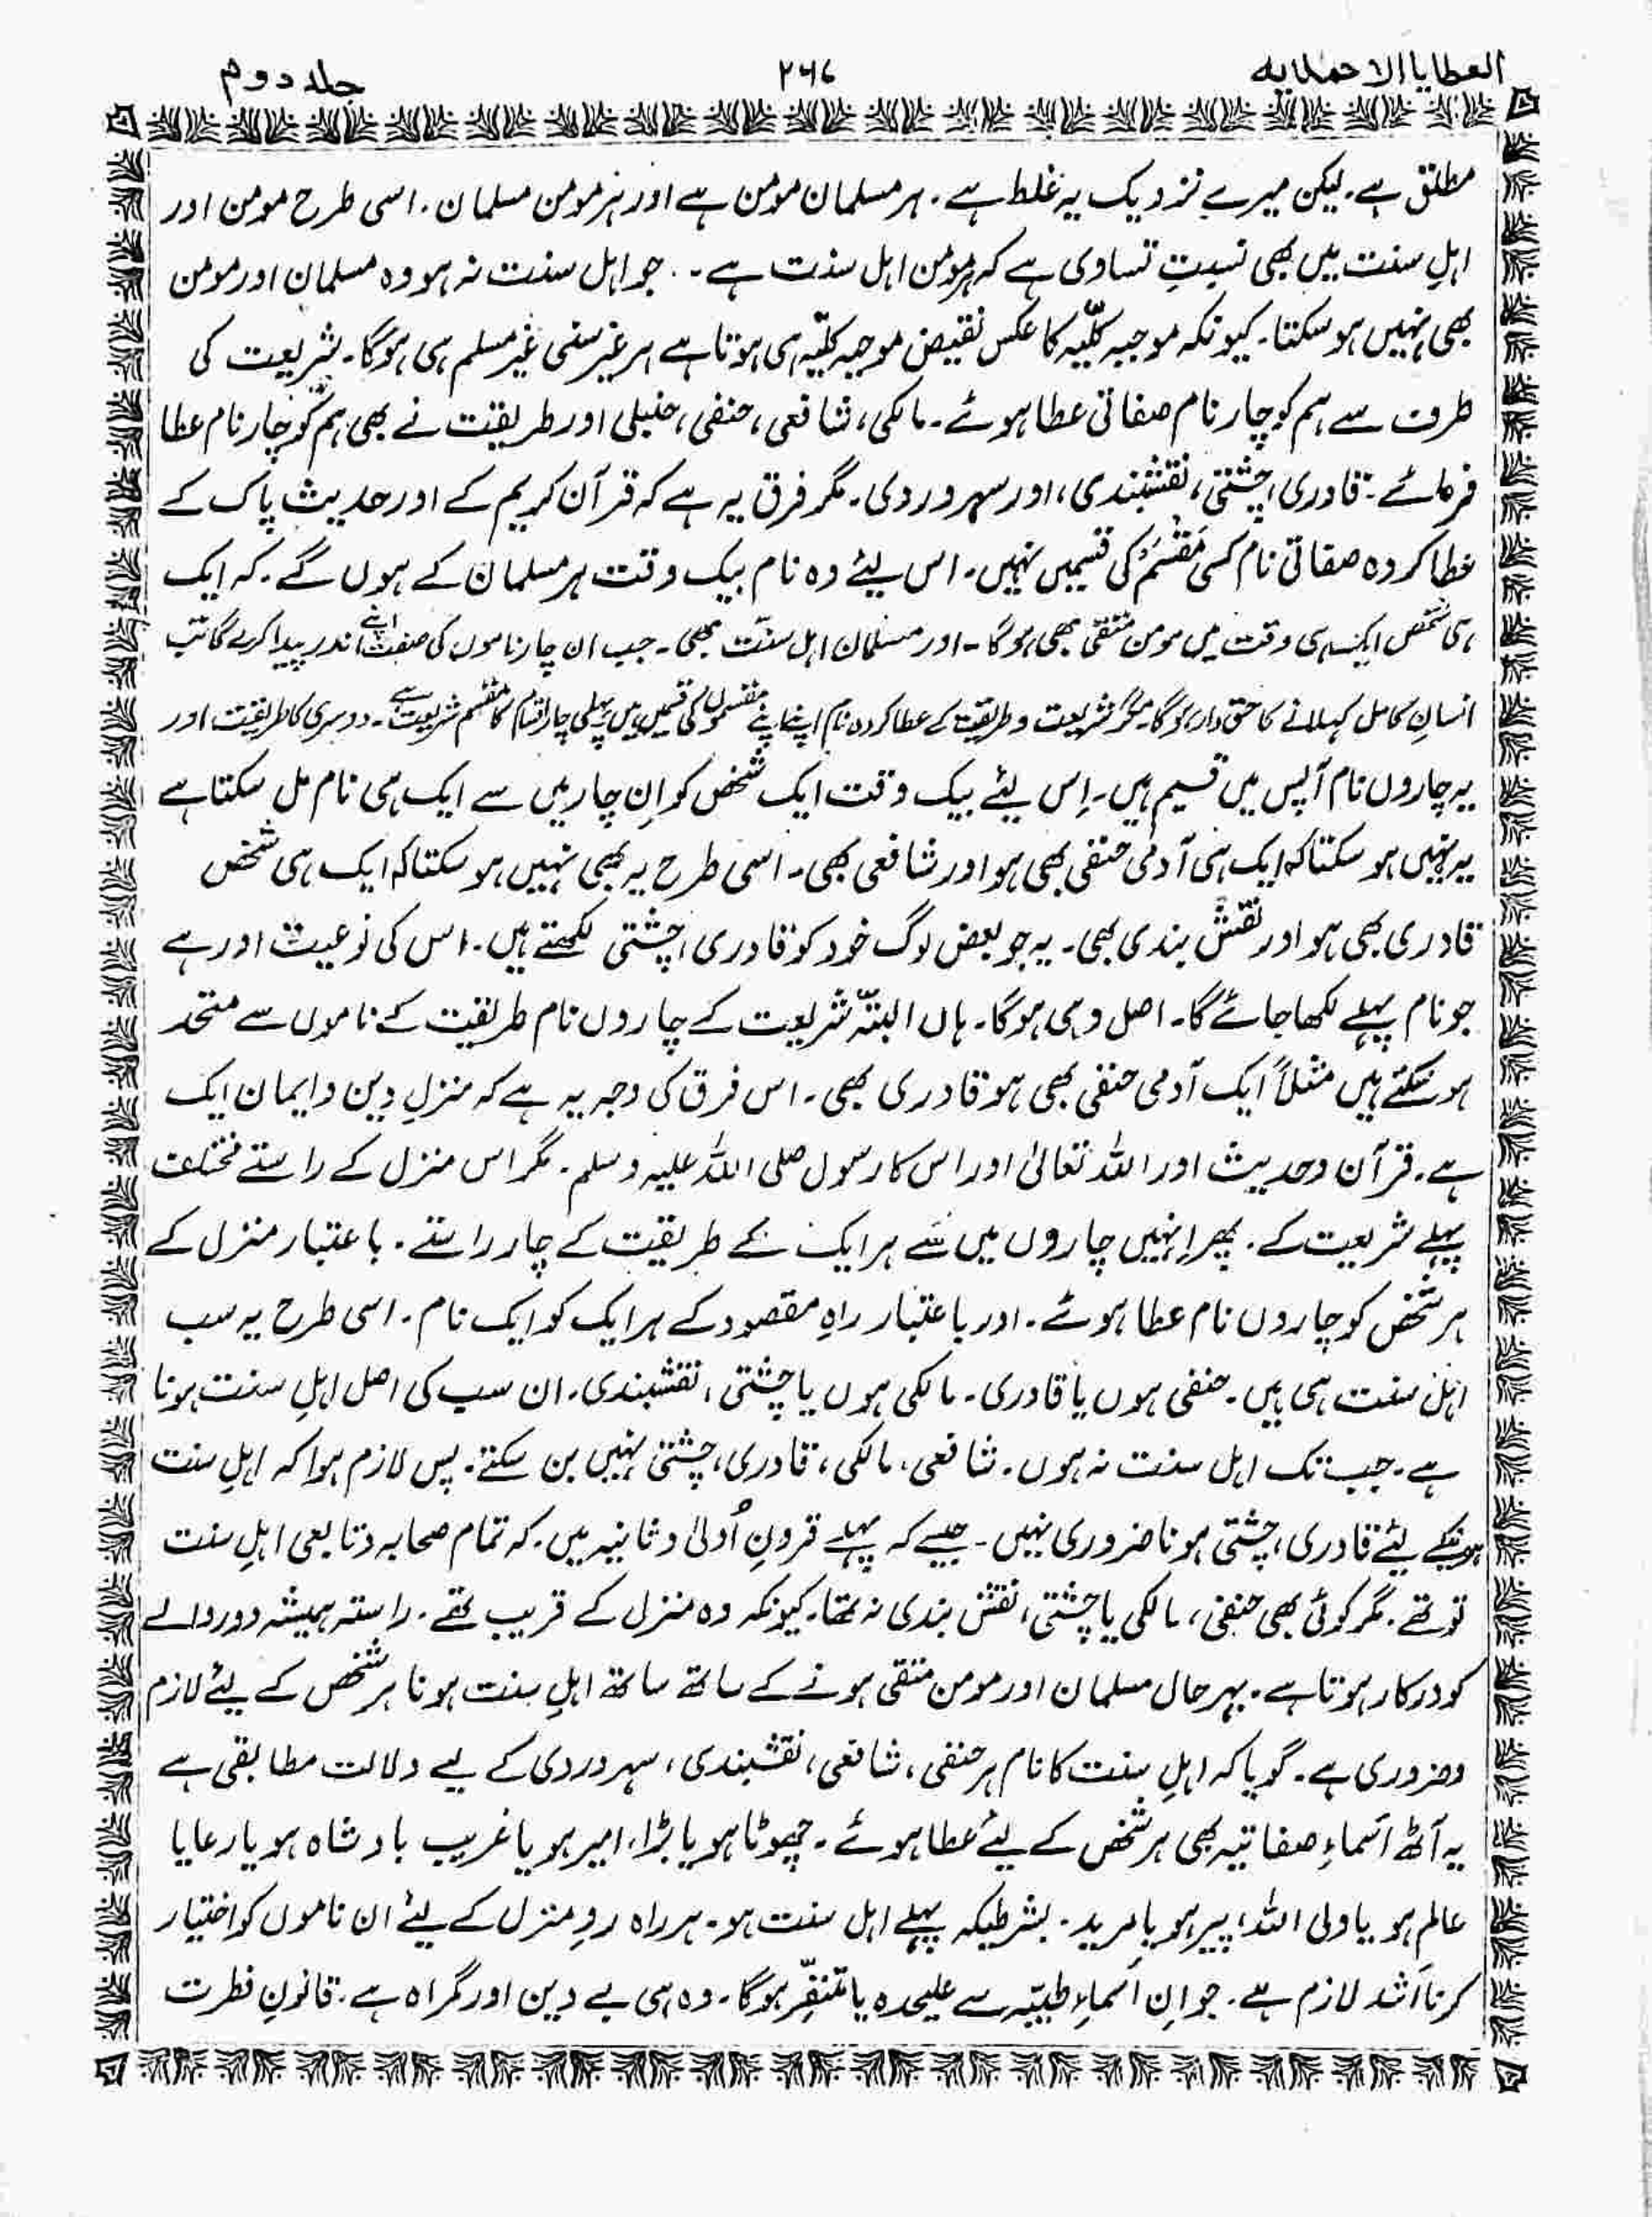 العطایا الاحمدیہ ۲۶۷ جلد دوم
مطلق ہے۔ لیکن میرے نزدیک یہ غلط ہے۔ ہر مسلمان مومن ہے اور ہر مومن مسلمان۔ اسی طرح مومن اور
اہلِ سنت میں بھی نسبتِ تساوی ہے کہ ہر مومن اہل سنت ہے۔ جو اہل سنت نہ ہو وہ مسلمان اور مومن
بھی نہیں ہو سکتا۔ کیونکہ موجبہ کلّیہ کا عکس نقیض موجبہ کلّیہ ہی ہوتا ہے ہر غیر سنی غیر مسلم ہی ہوگا۔ شریعت کی
طرف سے ہم کو چار نام صفاتی عطا ہوئے۔ مالکی، شافعی، حنفی، حنبلی اور طریقت نے بھی ہم کو چار نام عطا
فرمائے۔ قادری، چشتی، نقشبندی، اور سہروردی۔ مگر فرق یہ ہے کہ قرآن کریم کے اور حدیث پاک کے
عطا کردہ صفاتی نام کسی مَقْسَمْ کی قسمیں نہیں۔ اس لیئے وہ نام بیک وقت ہر مسلمان کے ہوں گے۔ کہ ایک
ہی شخص ایک ہی وقت میں مومن متقی بھی ہوگا۔ اور مسلمان اہل سنّت بھی۔ جب ان چار ناموں کی صفت اپنے اندر پیدا کرے گا تب
انسانِ کامل کہلانے کا حق دار ہوگا۔ مگر شریعت و طریقت کے عطا کردہ نام اپنے اپنے مقسموں کی قسمیں ہیں پہلی چار اقسام کا مقسم شریعت ہے۔ دوسری کا طریقت اور
یہ چاروں نام آپس میں قسیم ہیں۔ اِس لیئے بیک وقت ایک شخص کو اِن چار میں سے ایک ہی نام مل سکتا ہے
یہ نہیں ہو سکتا کہ ایک ہی آدمی حنفی بھی ہو اور شافعی بھی۔ اسی طرح یہ بھی نہیں ہو سکتا کہ ایک ہی شخص
قادری بھی ہو اور نقش بندی بھی۔ یہ جو بعض لوگ خود کو قادری، چشتی لکھتے ہیں۔ اس کی نوعیت اور ہے
جو نام پہلے لکھا جائے گا۔ اصل وہی ہوگا۔ ہاں البتّہ شریعت کے چاروں نام طریقت کے ناموں سے متحد
ہو سکتے ہیں مثلاً ایک آدمی حنفی بھی ہو قادری بھی۔ اس فرق کی وجہ یہ ہے کہ منزلِ دین و ایمان ایک
ہے۔ قرآن و حدیث اور اللہ تعالیٰ اور اس کا رسول صلی اللہ علیہ وسلم۔ مگر اس منزل کے راستے مختلف
پہلے شریعت کے۔ پھر اِنہیں چاروں میں سے ہر ایک کے طریقت کے چار راستے۔ باعتبار منزل کے
ہر شخص کو چاروں نام عطا ہوئے۔ اور باعتبار راہِ مقصود کے ہر ایک کو ایک نام۔ اسی طرح یہ سب
اہلِ سنت ہی ہیں۔ حنفی ہوں یا قادری۔ مالکی ہوں یا چشتی، نقشبندی۔ ان سب کی اصل اہلِ سنت ہونا
ہے۔ جب تک اہل سنت نہ ہوں۔ شافعی، مالکی، قادری، چشتی نہیں بن سکتے۔ پس لازم ہوا کہ اہلِ سنت
ہونیکے لیئے قادری، چشتی ہونا ضروری نہیں۔ جیسے کہ پہلے قرونِ اُولیٰ و ثانیہ میں۔ کہ تمام صحابہ و تابعی اہلِ سنت
تو تھے۔ مگر کوئی بھی حنفی، مالکی یا چشتی، نقش بندی نہ تھا۔ کیونکہ وہ منزل کے قریب تھے۔ راستہ ہمیشہ دور والے
کو درکار ہوتا ہے۔ بہر حال مسلمان اور مومن متقی ہونے کے ساتھ ساتھ اہلِ سنت ہونا ہر شخص کے لیئے لازم
و ضروری ہے۔ گویا کہ اہلِ سنت کا نام ہر حنفی، شافعی، نقشبندی، سہروردی کے لیے دلالت مطابقی ہے
یہ آٹھ اَسماءِ صفاتیہ بھی ہر شخص کے لیئے عطا ہوئے۔ چھوٹا ہو یا بڑا، امیر ہو یا غریب بادشاہ ہو یا رعایا
عالِم ہو یا ولی اللہ، پیر ہو یا مرید۔ بشرطیکہ پہلے اہل سنت ہو۔ ہر راہ روِ منزل کے لیئے ان ناموں کو اختیار
کرنا اَشد لازم ہے۔ جو اِن اَسماءِ طیبّہ سے علیحدہ یا متنفِّر ہوگا۔ وہ ہی بے دین اور گمراہ ہے۔ قانونِ فطرت